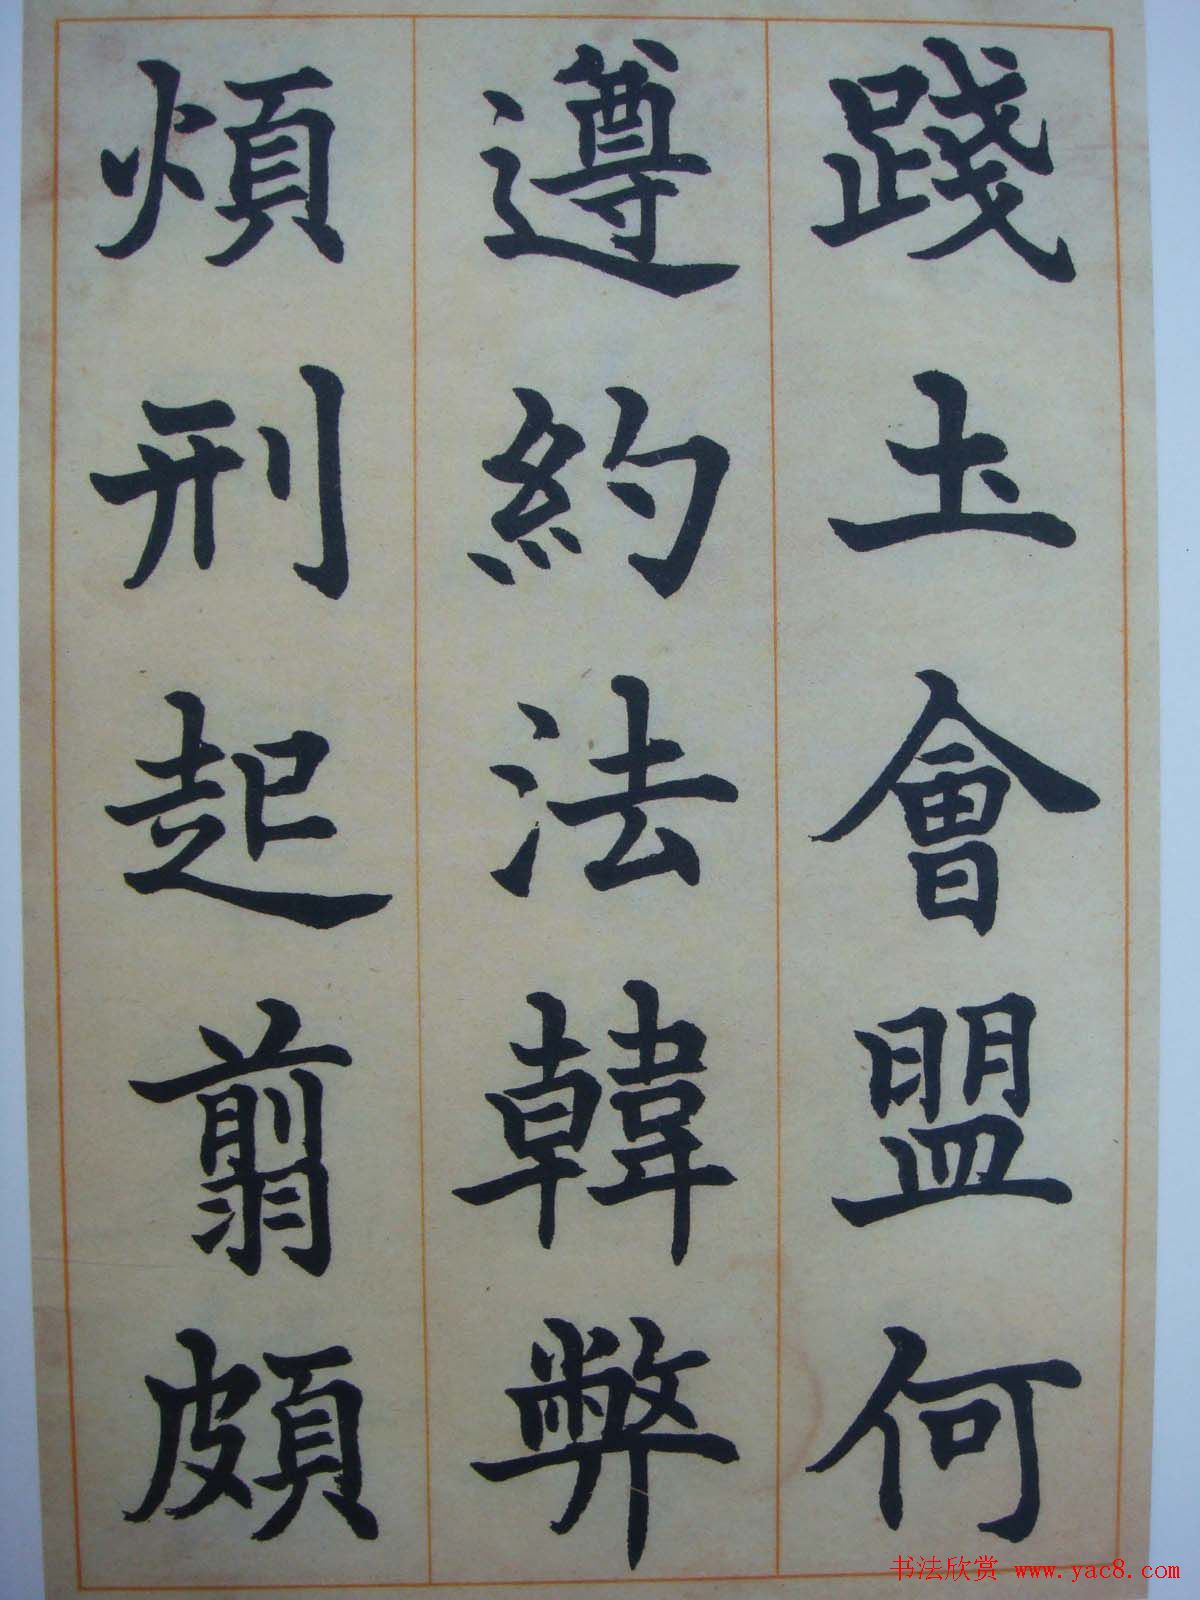 踐土會盟何
遵約法韓弊
煩刑起翦頗
书法欣赏 www.yac8.com